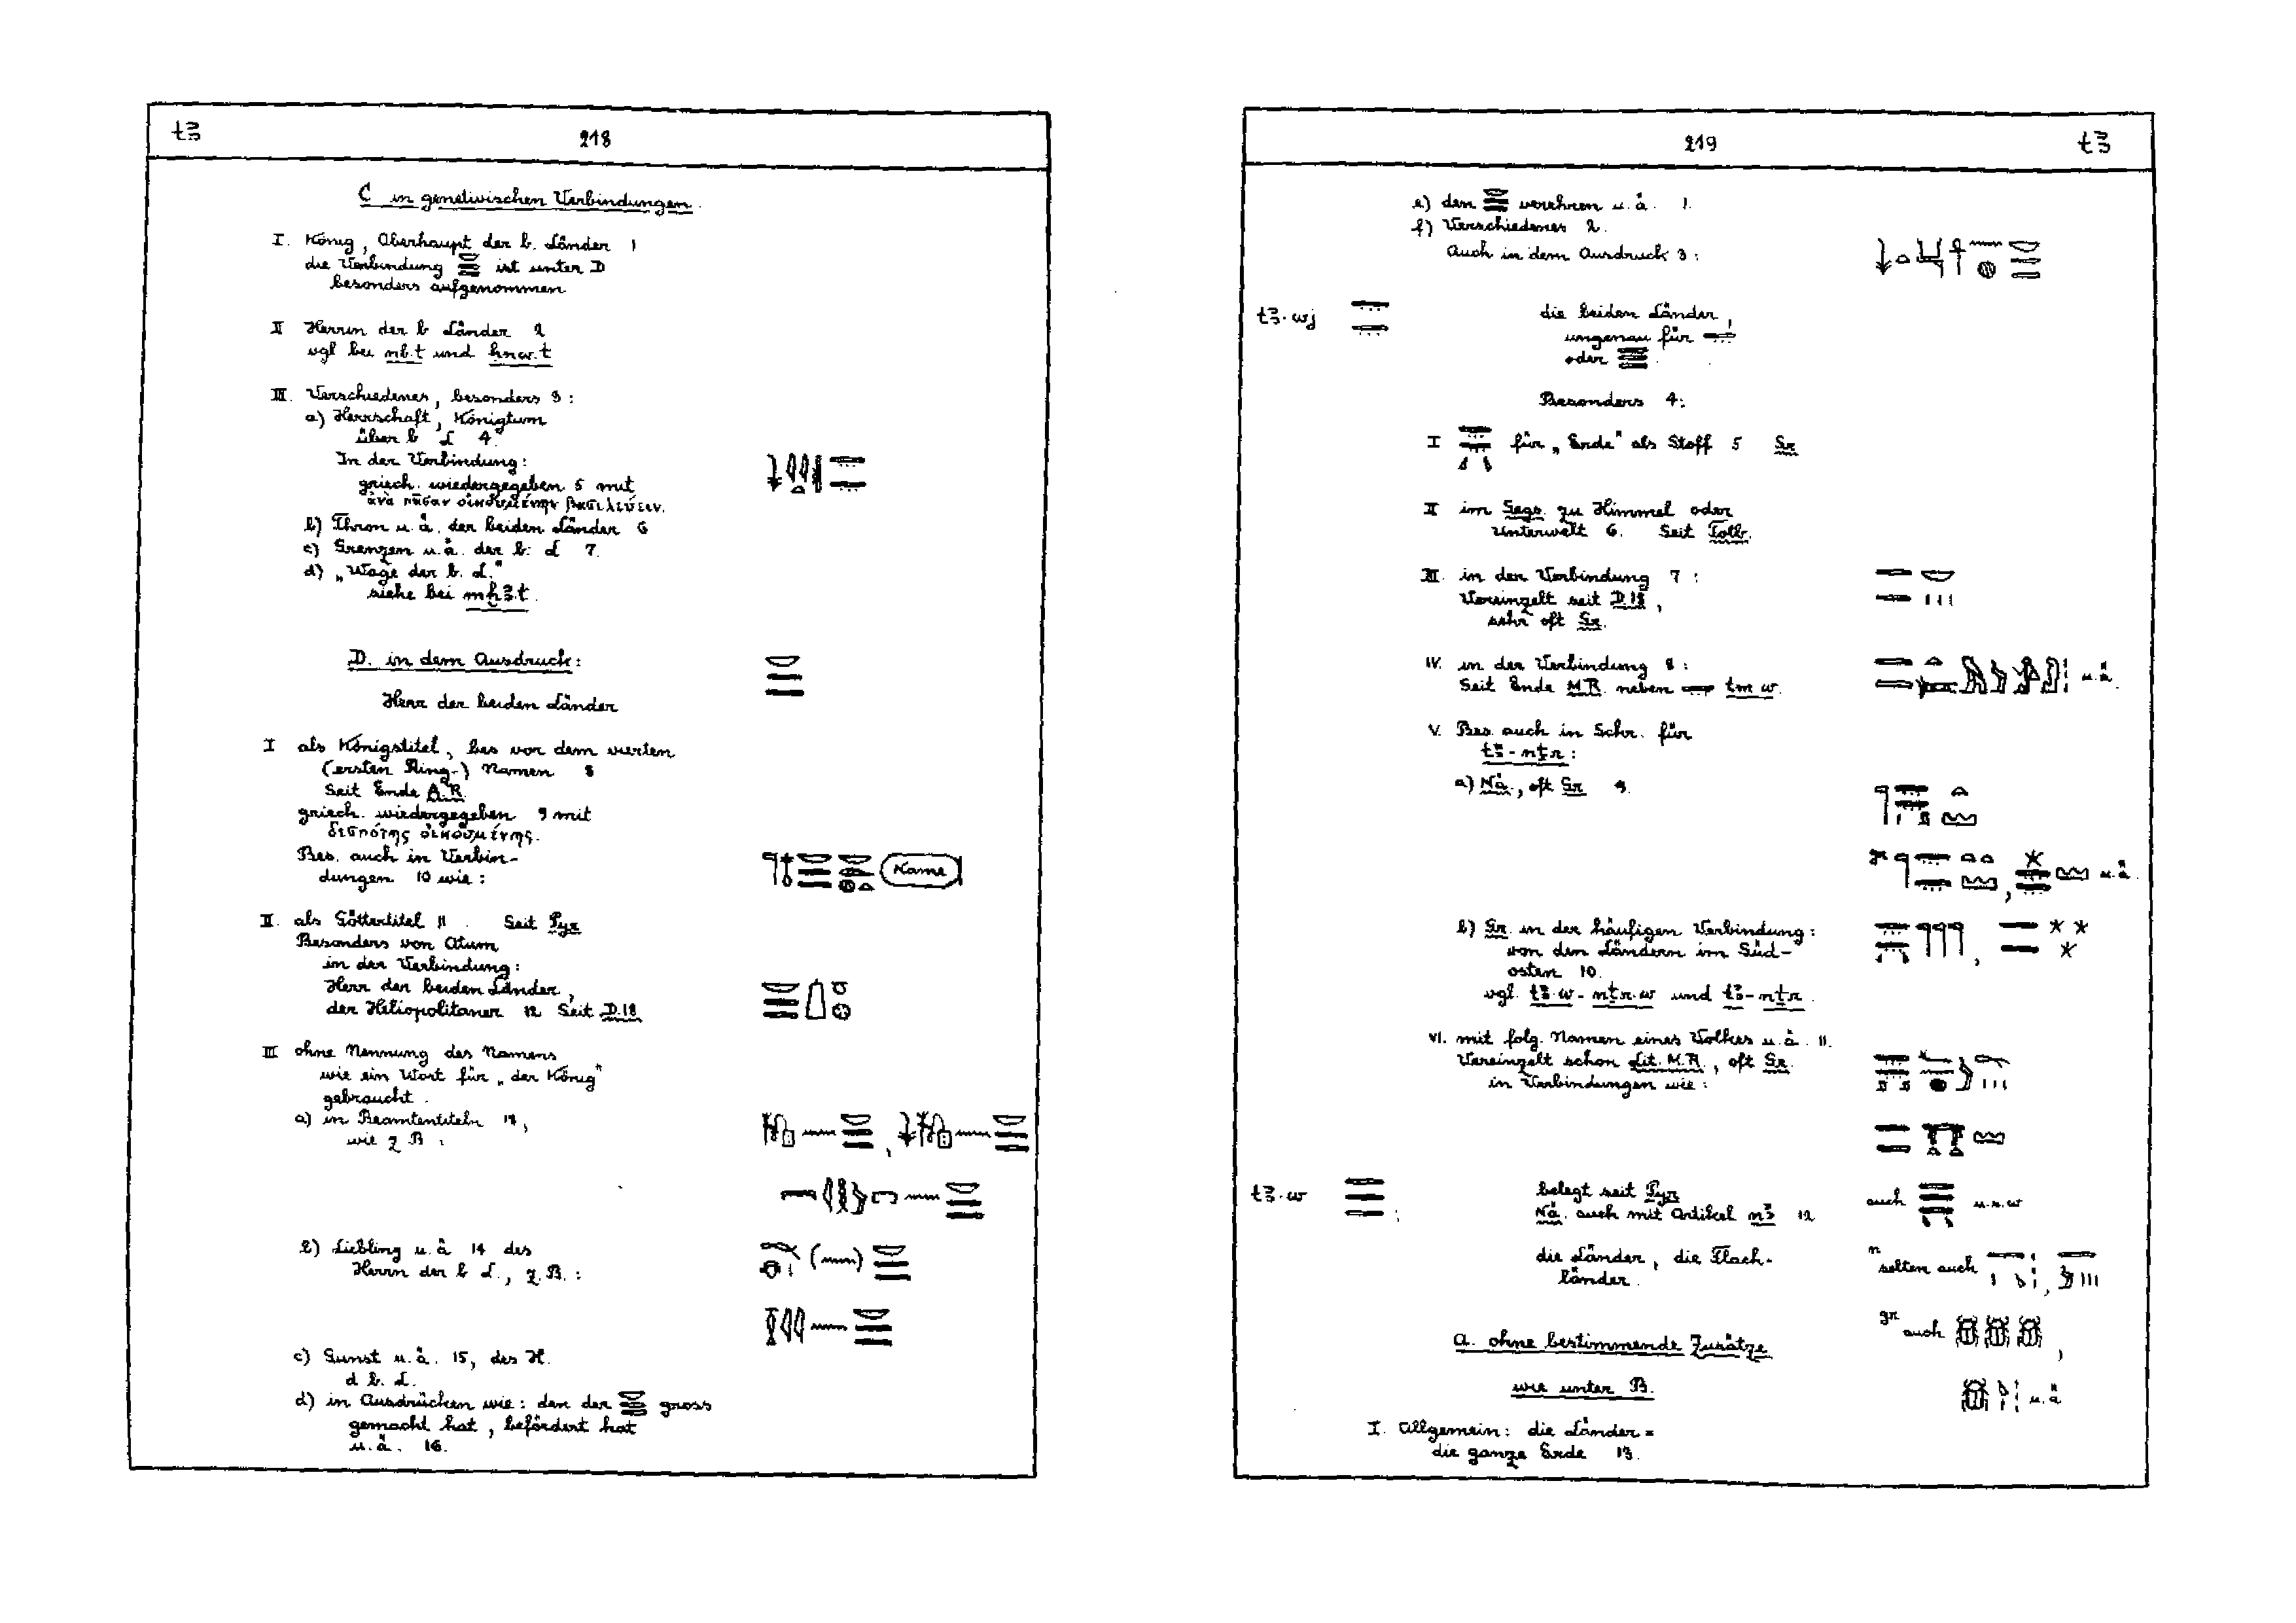 tꜣ
218
C in genetivischen Verbindungen.
I. König, Oberhaupt der b. Länder 1
die Verbindung 𓎟𓇿𓇿 ist unter D
besonders aufgenommen
II Herrin der b Länder 2
vgl bei nb.t und ḥnw.t
III. Verschiedenes, besonders 3:
a) Herrschaft, Königtum
über b L 4.
In der Verbindung:
griech. wiedergegeben 5 mit
ἀνὰ πᾶσαν οἰκουμένην βασιλεύειν.
b) Thron u.ä. der beiden Länder 6
c) Grenzen u.ä. der b. L 7.
d) „Wage der b. L."
siehe bei mḫꜣ.t.
D. in dem Ausdruck:
Herr der beiden Länder
I als Königstitel, bes vor dem vierten
(ersten Ring-) Namen 8
Seit Ende A.R.
griech. wiedergegeben 9 mit
δεσπότης οἰκουμένης.
Bes. auch in Verbin-
dungen 10 wie:
Name
II. als Göttertitel 11. Seit Pyr
Besonders von Atum
in der Verbindung:
Herr der beiden Länder,
der Heliopolitaner 12 Seit D.18
III ohne Nennung des Namens
wie ein Wort für „der König"
gebraucht.
a) in Beamtentiteln 13,
wie z B:
b) Liebling u.ä 14 des
Herrn der b L., z.B.:
c) Gunst u.ä. 15, des H.
d b. L.
d) in Ausdrücken wie: den der 𓎟𓇿𓇿 gross
gemacht hat, befördert hat
u.ä. 16.
219
tꜣ
e) den 𓎟𓇿𓇿 verehren u.ä. 1.
f) Verschiedenes 2.
Auch in dem Ausdruck 3:
tꜣ.wj 𓇿𓇿 die beiden Länder,
ungenau für 𓇿
oder 𓇿𓇿𓇿.
Besonders 4:
I 𓇿𓇿 für „Erde" als Stoff 5 Gr
II im Ggs. zu Himmel oder
Unterwelt 6. Seit Totb.
III. in der Verbindung 7:
Vereinzelt seit D.18,
sehr oft Gr.
IV. in der Verbindung 8:
Seit Ende M.R. neben tm.w. u.ä.
V. Bes. auch in Schr. für
tꜣ-nṯr:
a) Nä., oft Gr 9.
gr u.ä.
b) Gr. in der häufigen Verbindung:
von den Ländern im Süd-
osten 10.
vgl. tꜣ.w-nṯr.w und tꜣ-nṯr.
VI. mit folg. Namen eines Volkes u.ä. 11.
Vereinzelt schon Lit. M.R., oft Gr.
in Verbindungen wie:
tꜣ.w 𓇿𓇿𓇿; belegt seit Pyr auch u.s.w
Nä. auch mit Artikel nꜣ 12
die Länder, die Flach-
länder.
n selten auch
gr auch
u.ä
a. ohne bestimmende Zusätze
wie unter B.
I. Allgemein: die Länder =
die ganze Erde 13.